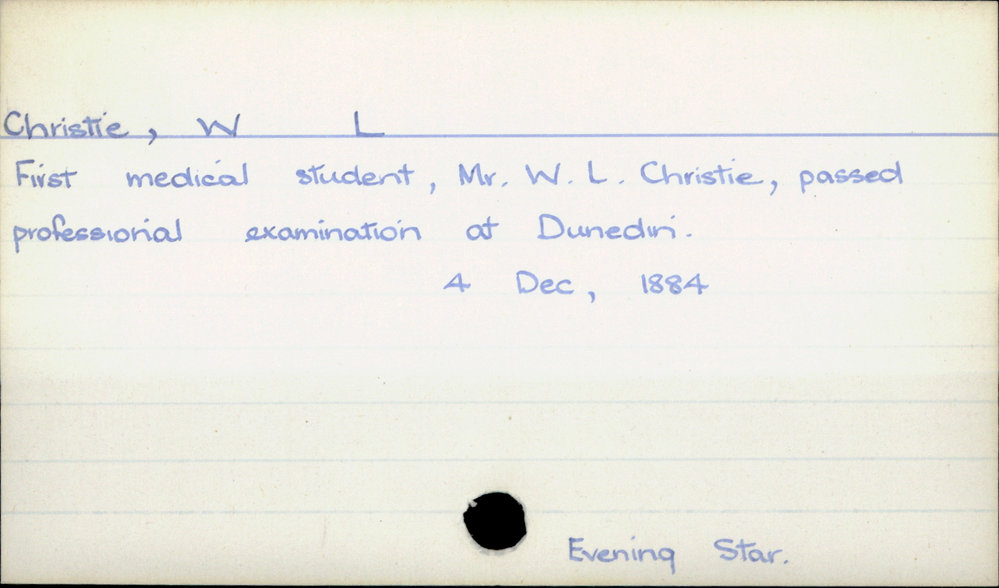 Christie, W L
First medical student, Mr. W. L. Christie, passed
professional examination at Dunedin.
4 Dec, 1884
Evening Star.